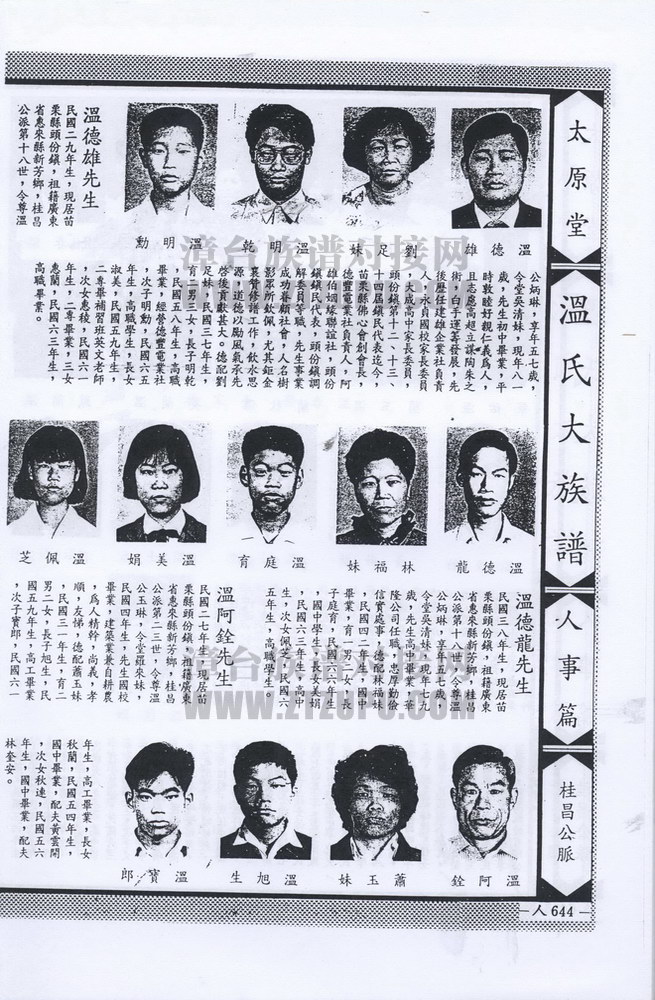 太原堂
溫氏大族譜
人事篇
桂昌公脈
—人644—
溫德雄
劉足妹
溫明乾
溫明勳
溫德雄先生
民國二九年生，現居苗
栗縣頭份鎮，祖籍廣東
省惠來縣新芳鄉，桂昌
公派第十八世，令尊溫
公炳琳，享年五七歲，
令堂吳清妹，現年八一
歲，先生初中畢業，平
時敦睦好親仁義爲人，
且志慮高超立謀陶朱之
術，白手運籌發展，先
後歷任建雄企業社負責
人，永貞國校家長委員
，大成高中家長委員，
頭份鎮第十二、十三、
十四屆鎮民代表迄今，
苗栗縣佛心會創會長，
德豐電業社負責人，阿
雄伯姻緣聯誼社，頭份
鎮鎮民代表，頭份鎮調
解委員等職，先生事業
成功眷顧社會，人名樹
影眾所欽佩，尤其鉅金
襄贊修譜工作，飲水思
源，道德以勵風氣承先
啓後貢獻甚大。德配劉
足妹，民國三七年生，
育二男三女，長子明乾
，民國五八年生，高職
畢業，經營德豐電業社
，次子明勳，民國六五
年生，高職學生，長女
淑美，民國五九年生，
二專畢補習班英文老師
，次女惠稜，民國六一
年生，二專畢業，三女
惠蘭，民國六三年生，
高職畢業。
溫德龍
林福妹
溫庭育
溫美娟
溫佩芝
溫德龍先生
民國三八年生，現居苗
栗縣頭份鎮，祖籍廣東
省惠來縣新芳鄉，桂昌
公派第十八世，令尊溫
公炳琳，享年五七歲，
令堂吳清妹，現年七九
歲，先生高中畢業，華
隆公司任職，忠厚勤儉
信實處事，德配林福妹
，民國四二年生，國中
畢業，育一男二女，長
子庭育，民國六六年生
，國中學生，長女美娟
，民國六三年生，高中
生，次女佩芝，民國六
五年生，高職學生。
溫阿銓先生
民國二七年生，現居苗
栗縣頭份鎮，祖籍廣東
省惠來縣新芳鄉，桂昌
公派第二三世，令尊溫
公玉琳，令堂羅來妹，
民國四年生，先生國校
畢業，建築業兼自耕農
，爲人精幹，尚義，孝
順，友悌，德配蕭玉妹
，民國三一年生，育二
男二女，長子旭生，民
國五九年生，高工畢業
，次子寶郎，民國六一
年生，高工畢業，長女
秋蘭，民國五四年生，
國中畢業，配夫黃雲開
，次女秋連，民國五六
年生，國中畢業，配夫
林奎安。
溫阿銓
蕭玉妹
溫旭生
溫寶郎
漳台族谱对接网